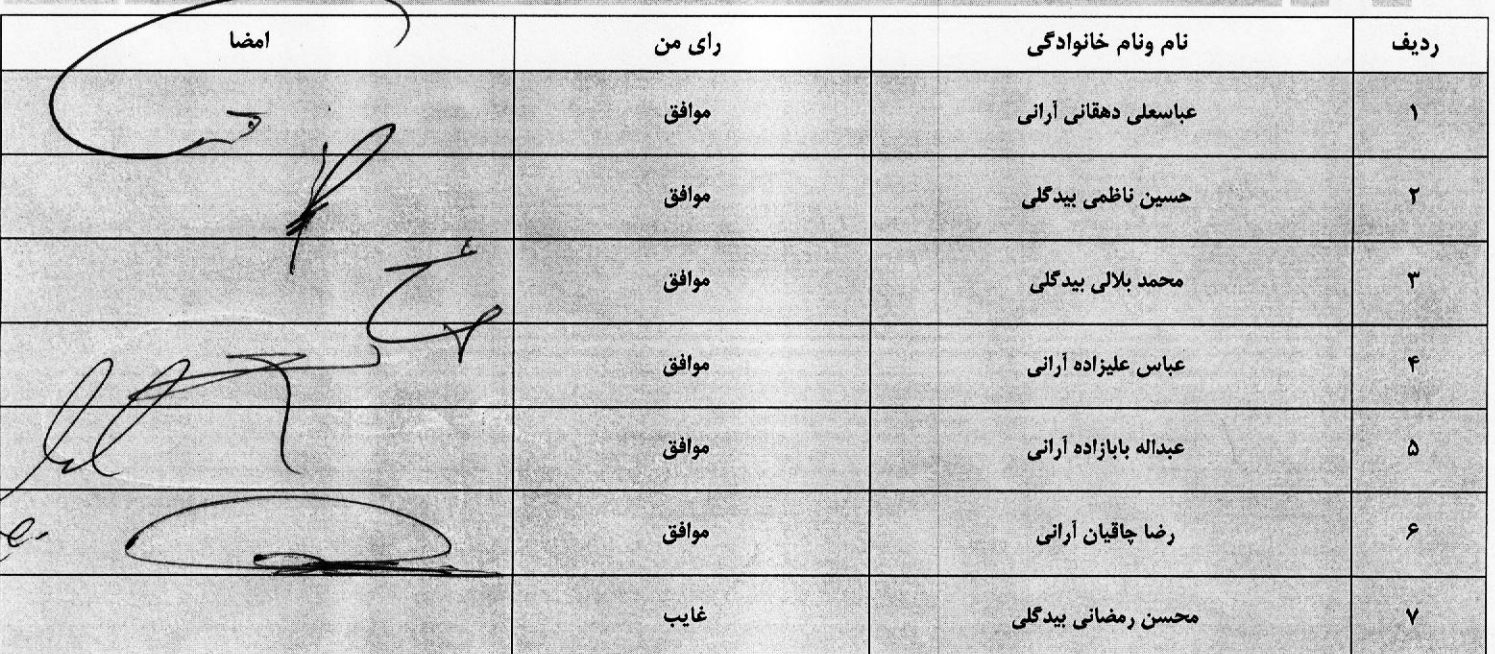 ردیف نام ونام خانوادگی رای من امضا
۱ عباسعلی دهقانی آرانی موافق
۲ حسین ناظمی بیدگلی موافق
۳ محمد بلالی بیدگلی موافق
۴ عباس علیزاده آرانی موافق
۵ عبداله بابازاده آرانی موافق
۶ رضا چاقیان آرانی موافق
۷ محسن رمضانی بیدگلی غایب